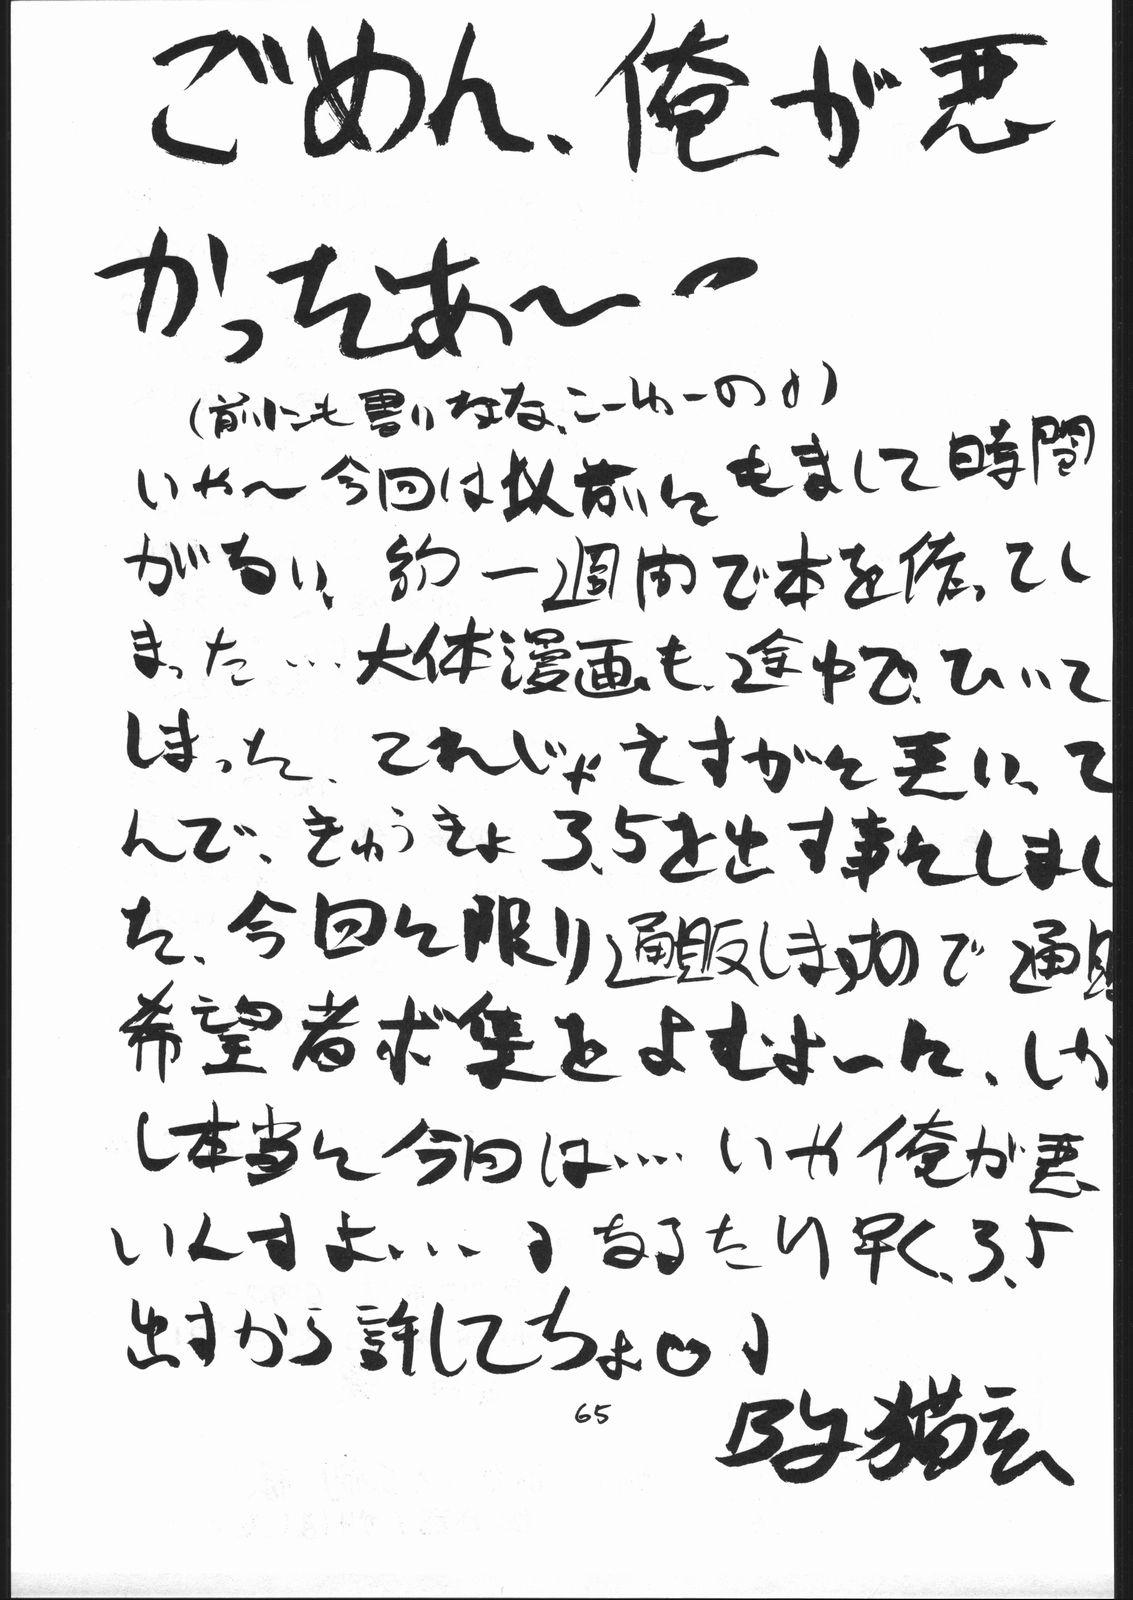 ごめん、俺が悪
かったあ〜
(前にも書いたな、こーゆーの♪)
いや〜今回は以前にもまして時間
がない、約一週間で本を作ってし
まった…大体漫画も、途中で、ひいて
しまった、これじゃさすがに悪いって
んで、きゅうきょ3.5を出す事にしまし
た、今回に限り通販しますので通販
希望者ボ集をよむよーに、しか
し本当に今回は…いや俺が悪
いんすよ…♪なるたけ早く、3.5
出すから許してちょ♡♪
65
By 猫玄